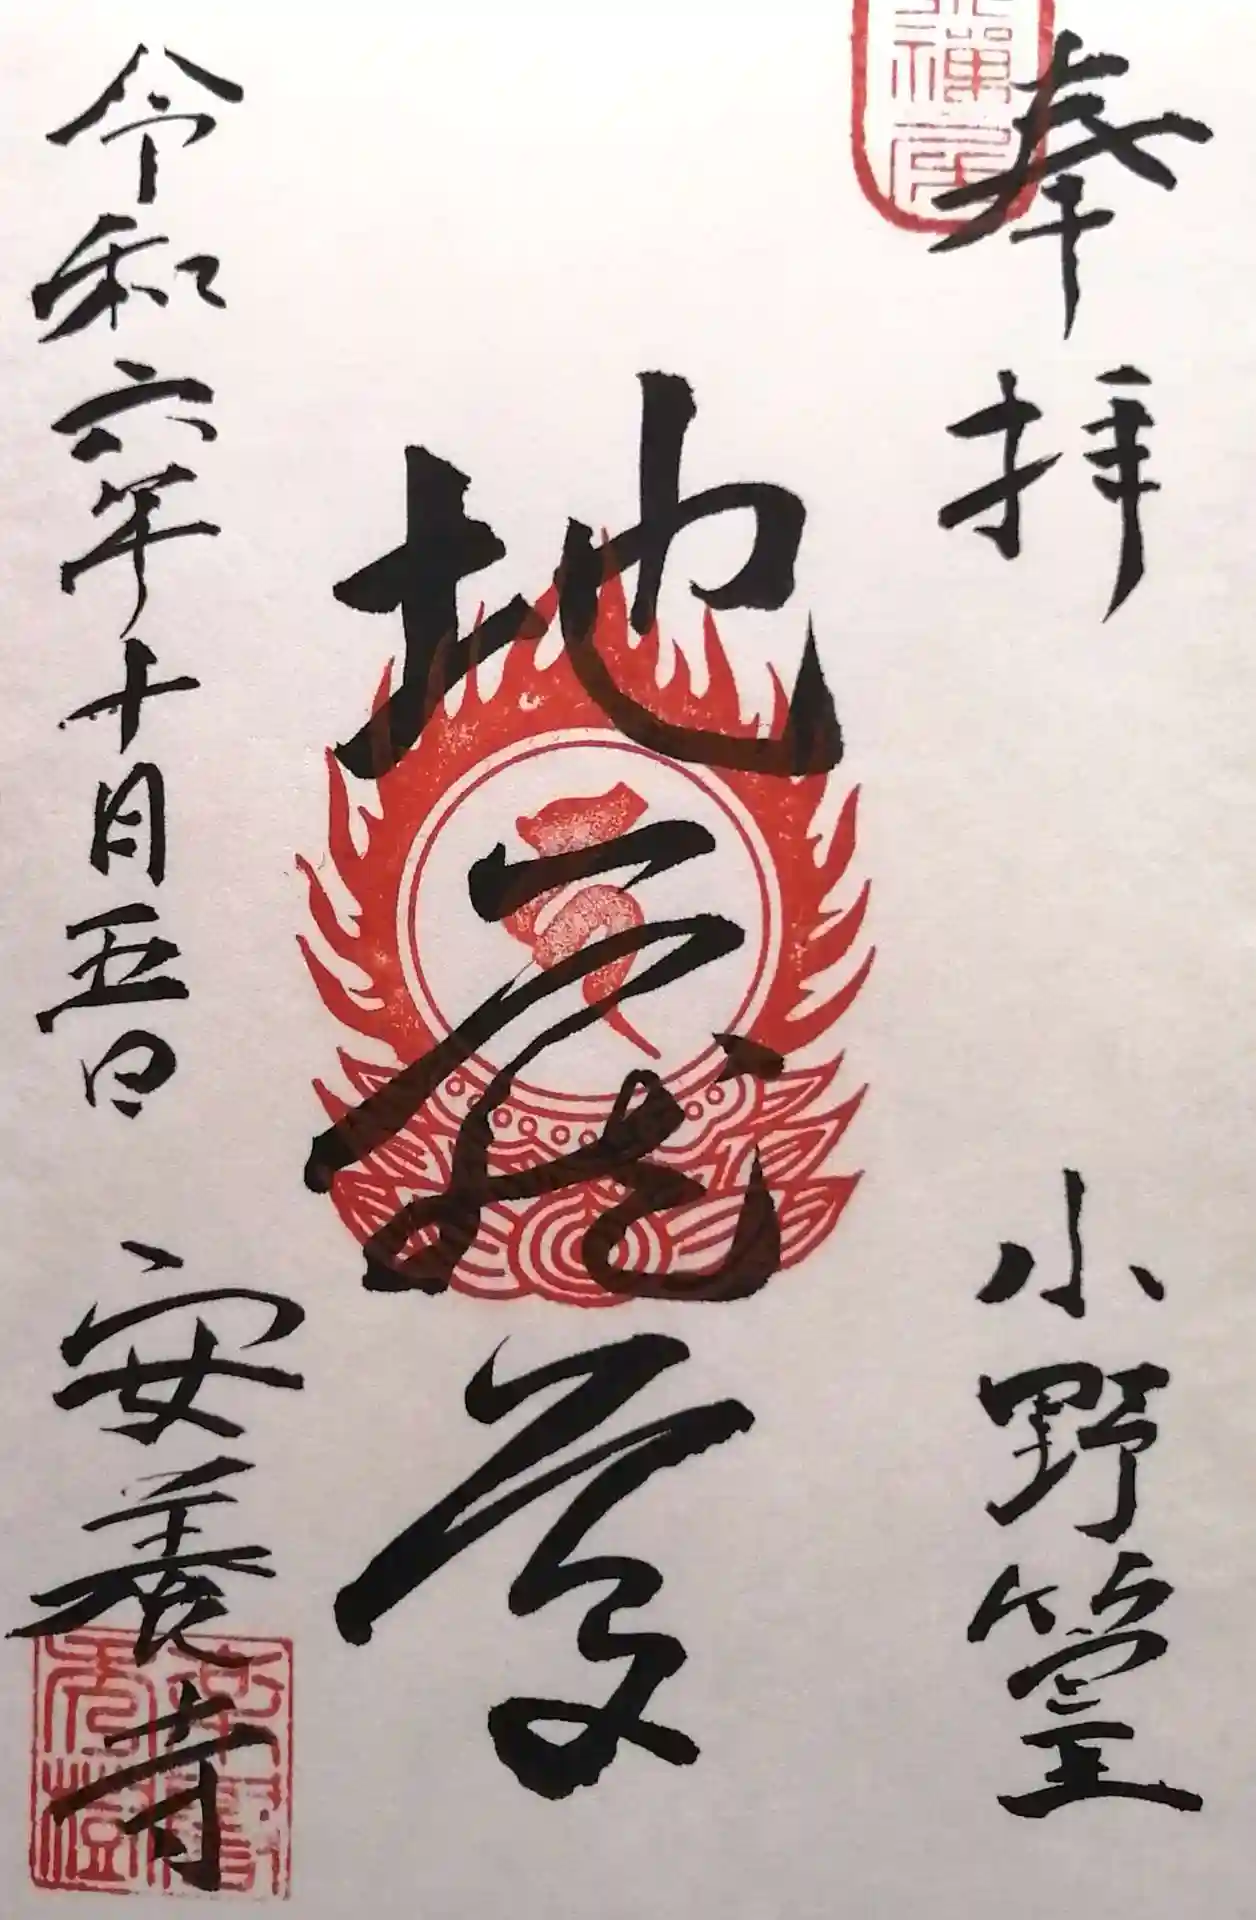 奉拝　小野篁
地蔵尊
令和六年十月五日　安養寺